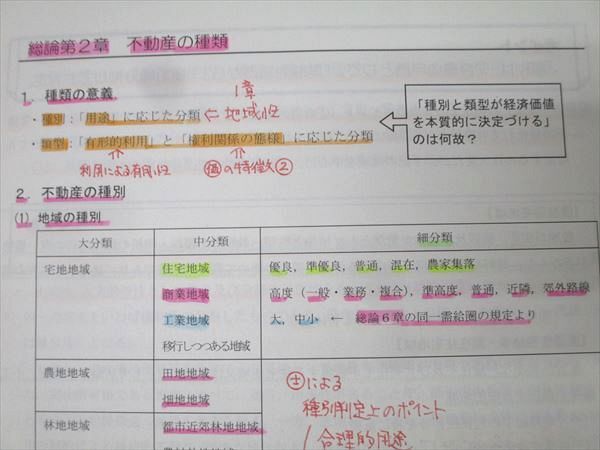 総論第2章　不動産の種類
1．種類の意義
1章
・種別：「用途」に応じた分類 ← 地域性
・類型：「有形的利用」と「権利関係の態様」に応じた分類
「種別と類型が経済価値を本質的に決定づける」のは何故？
利用による有用性
価の特徴②
2．不動産の種別
(1) 地域の種別
大分類　中分類　細分類
宅地地域　住宅地域　優良，準優良，普通，混在，農家集落
商業地域　高度（一般・業務・複合），準高度，普通，近隣，郊外路線
工業地域　大，中小　←　総論6章の同一需給圏の規定より
移行しつつある地域
農地地域　田地地域
畑地地域
土による
種別判定上のポイント
林地地域　都市近郊林地地域
合理的用途